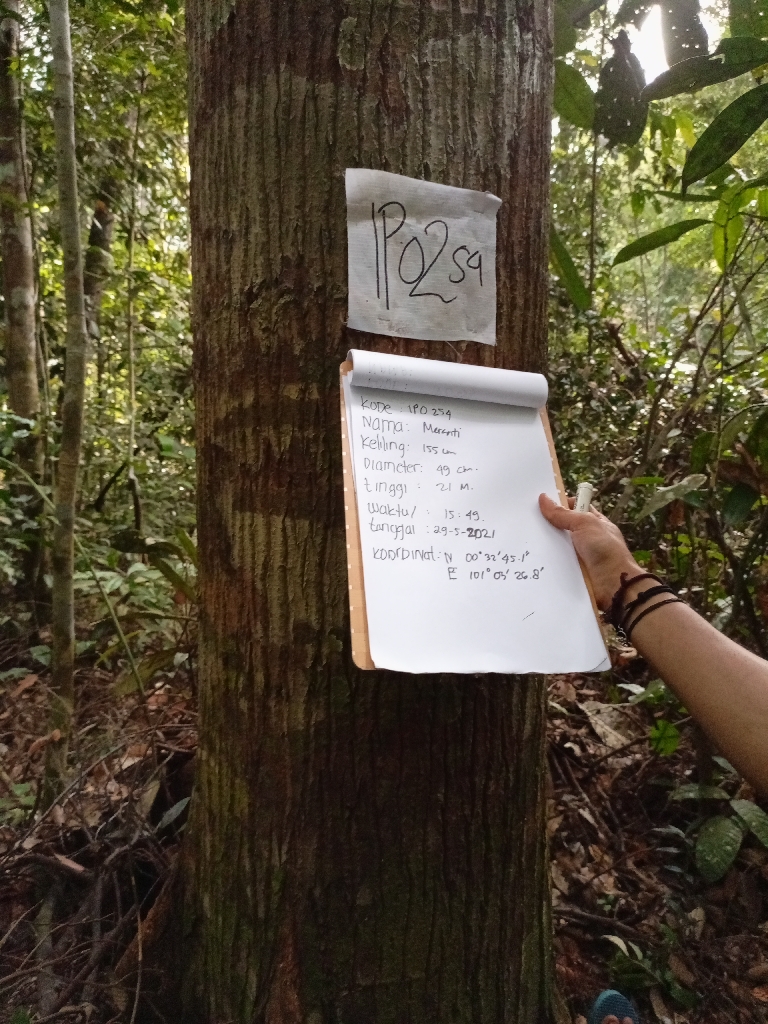 IPO259
Kode : IPO 259
Nama : Meranti
Keliling : 155 cm
Diameter : 49 cm.
tinggi : 21 M.
Waktu/ : 15:49.
tanggal : 29-5-2021
Koordinat : N 00°32'45.1"
E 101°03'26.8'